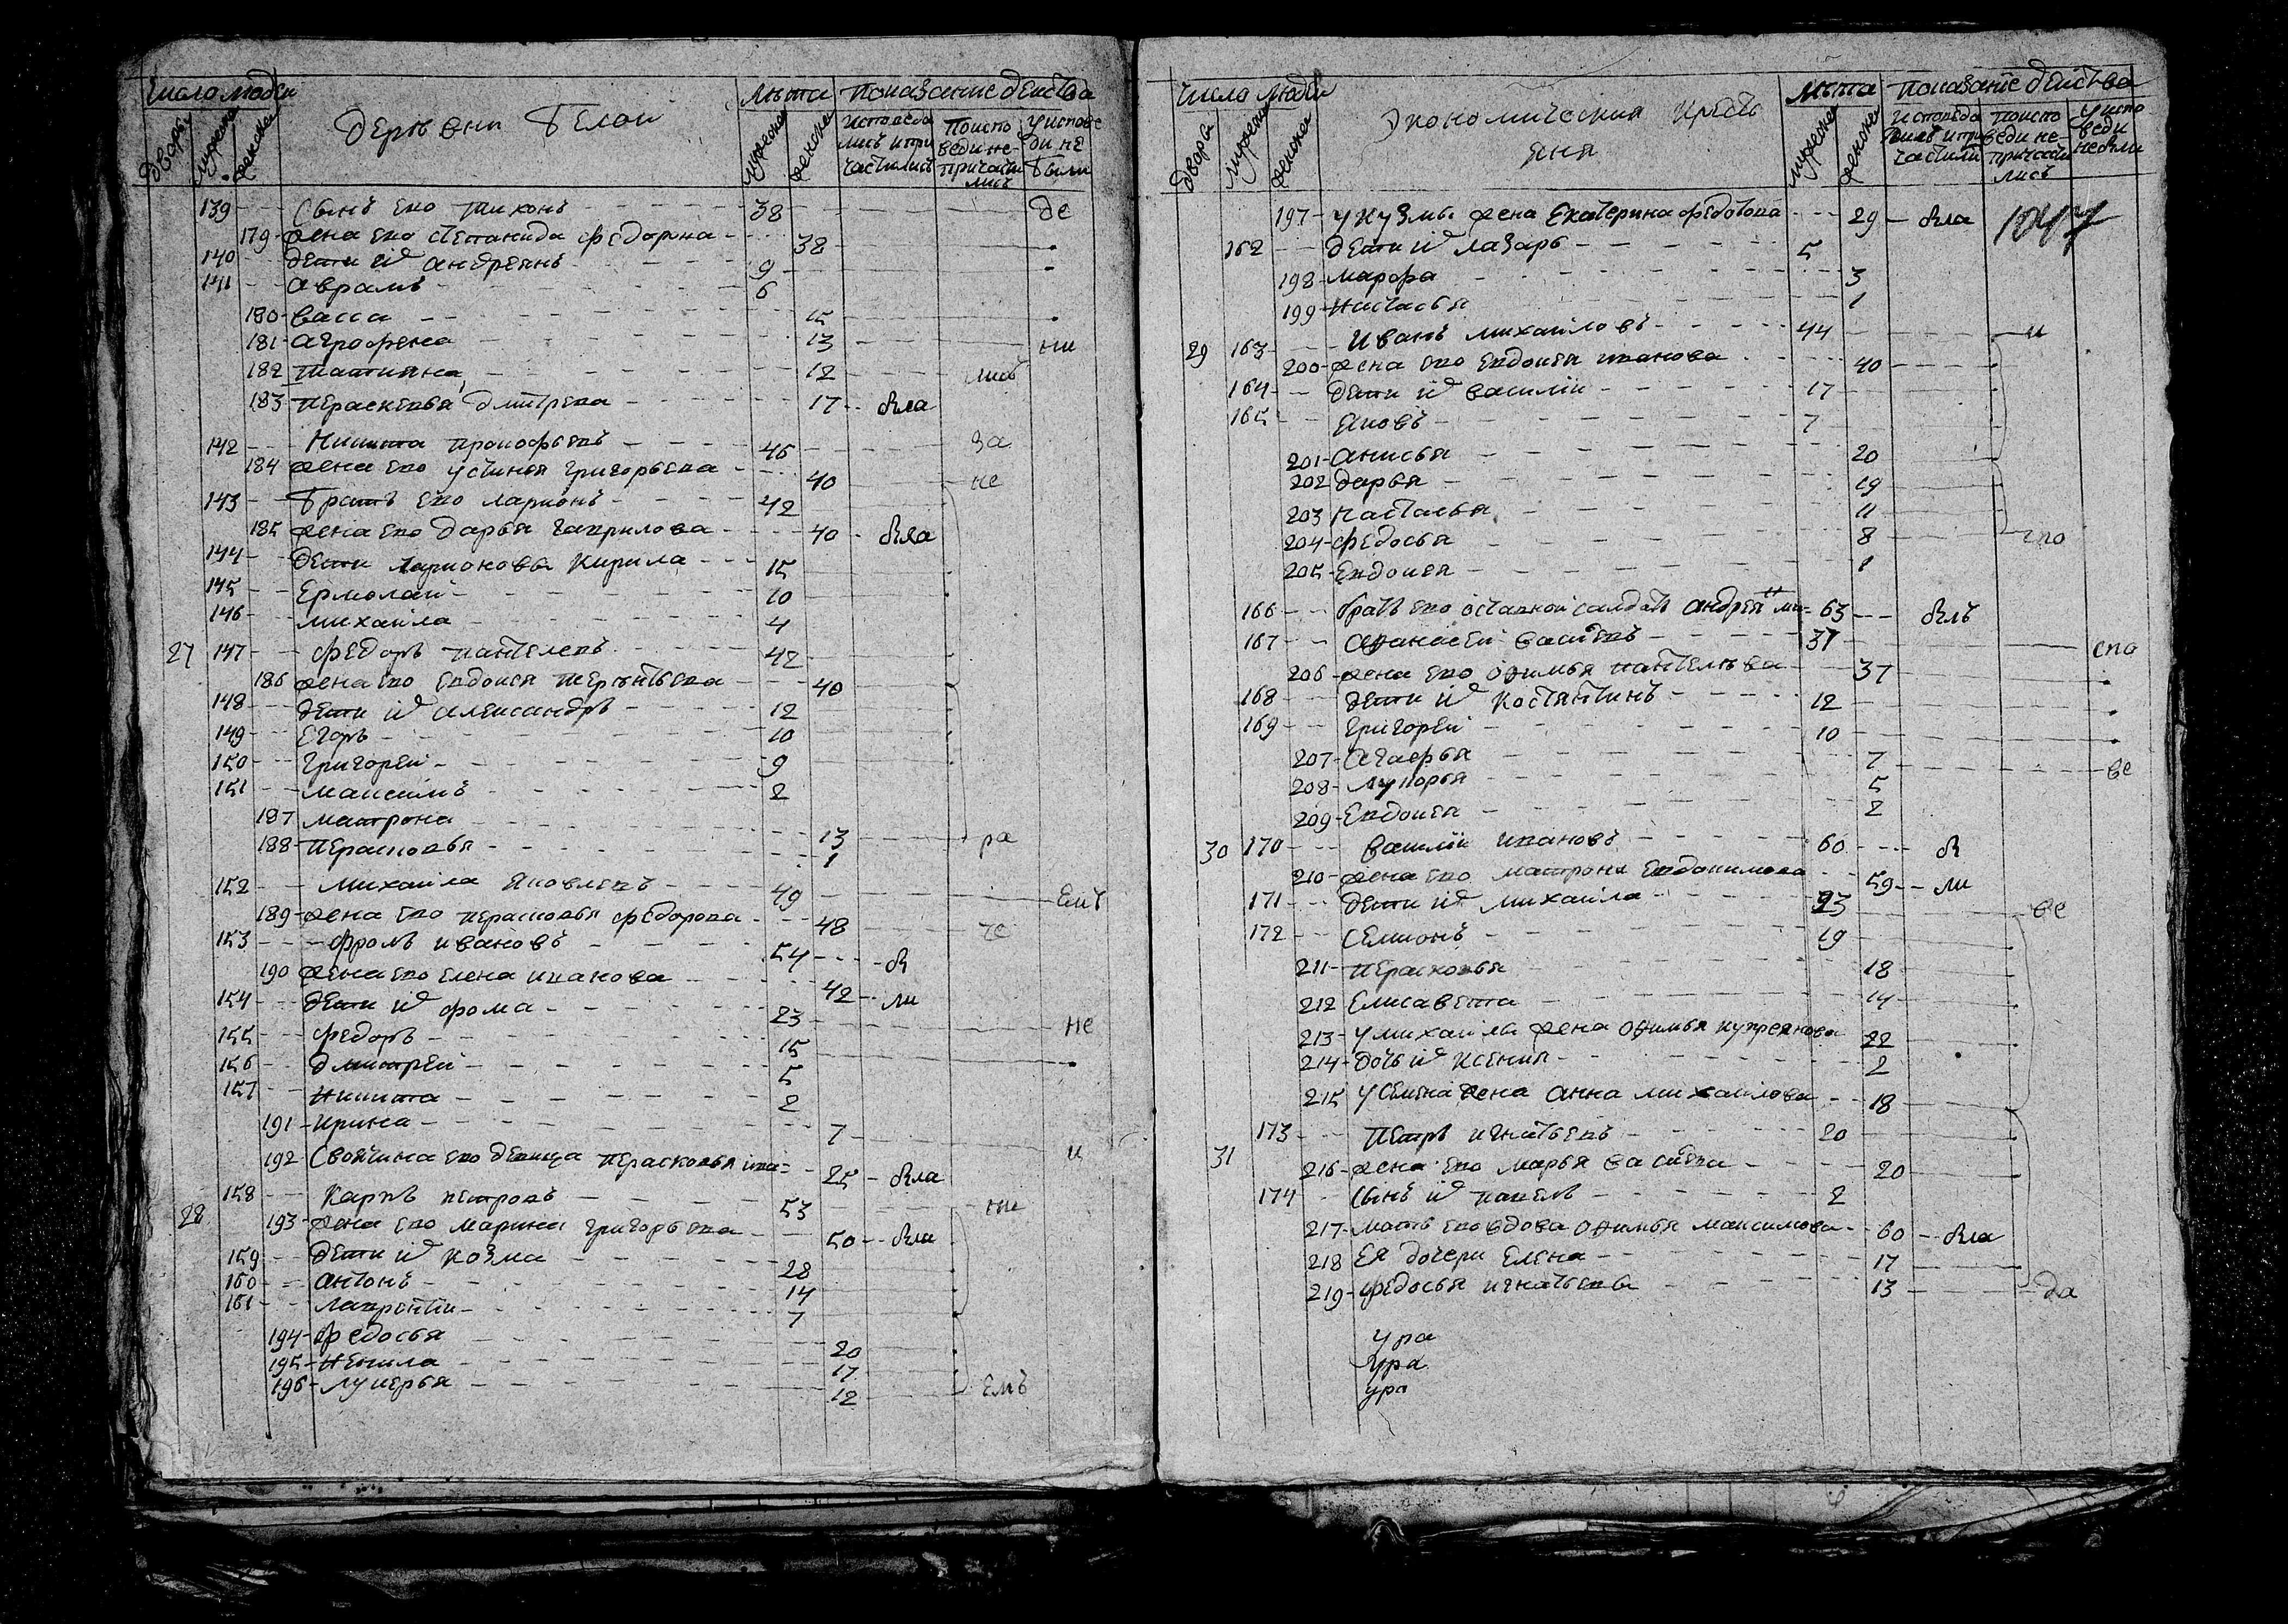 Число людей
Дворы
мужска
женска
деревни Белой
Лѣта
мужска
женска
показание действа
исповеда лись и при частились
поиспо веди не- причасти лись
у испове ди не были
139 Сынъ ево тихонъ 38 де
179 жена ево степанида федорова 38
140 дети их андреянъ 9
141 аврамъ 6
180 васса 15
181 аграфена 13 ни
182 татияна 12 лисъ
183 пераскевья дмитрева 17 была
142 Никита прокофьевъ 46 за
184 жена ево устинья григорьева 40 не
143 братъ ево ларионъ 42
185 жена ево дарья гаврилова 40 была
144 дети ларионовы кирила 15
145 Ермолай 10
146 михаила 4
27 147 федоръ пантелевъ 42
186 жена ево евдокея терентьева 40
148 дети их александръ 12
149 Егоръ 10
150 григорей 9
151 максимъ 2
187 матрона 13 ра
188 перасковья 1
152 михаила яковлевъ 49
189 жена ево перасковья федорова 48 че
153 фролъ ивановъ 54 бы
190 жена ево елена иванова 42 ли
154 дети их фома 23 не
155 федоръ 15
156 дмитрей 5
157 никита 2
191 ирина 7 и
192 Своячина ево девица перасковья ива= 25 была
28 158 карпъ петровъ 53 ни
193 жена ево марина григорьева 50 были
159 дети их козма 28
160 антонъ 14
161 лаврентии 7
194 федосья 20
195 ненила 17
196 лукерья 12 емъ
Число людей
Дворы
мужска
женска
Экономическия кресть
яня
Лѣта
мужска
женска
показание действа
исповеда лись и при частили
поиспо веди не- причасти лись
у испо веди не были
197 у кузмы жена Екатерина федотова 29 была 1047
162 дети их лазарь 5
198 марфа 3
199 Настасья 1
29 163 Иванъ михаиловъ 44 и
200 жена ево евдокея иванова 40
164 дети их василии 17
165 яковъ 7
201 анисья 20
202 дарья 19
203 настасья 11
204 федосья 8
205 Евдокея 1
166 братъ ево оставной салдатъ андрей ми= 63 былъ
167 афанасей васильевъ 37 ево
206 жена ево офимья пантелѣва 37
168 дети их костянтинъ 12
169 григорей 10
207 агафья 7 ве
208 лукерья 5
209 Евдокея 2
30 170 василии ивановъ 60 бы
210 жена ево матрона евдокимова 59 ли
171 дети их михаила 23 ве
172 семионъ 19
211 перасковья 18
212 Елисавета 14
213 у михаилы жена офимья купреянова 22
214 дочь их ксения 2
215 у семена жена анна михаилова 18
31 173 петръ игнатьевъ 20
216 жена ево марья васильева 20
174 сынъ их павелъ 2
217 мать ево вдова офимья максимова 60 была
218 Ея дочери елена 17
219 федосья игнатьевы 13 да
ура
ура
ура